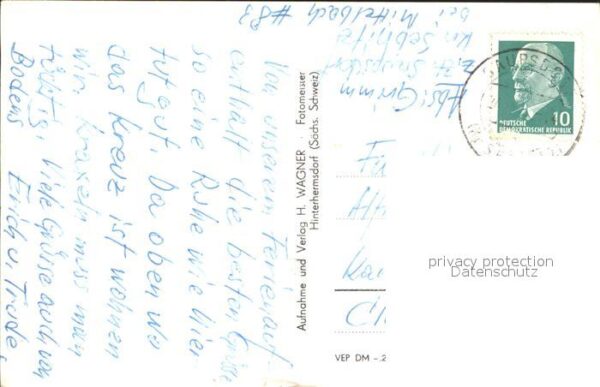 Von unserem Ferienauf-
enthalt die besten Grüße,
so eine Ruhe wie hier
tut gut. Da oben wo
das Kreuz ist wohnen
wir. Kraxeln muss man
tüchtig. Viele Grüsse auch von
Bodens Erich u. Trude.
Abs: Grimm
z. Zt.
Kr. Sebnitz
bei Mittelbach #83
Aufnahme und Verlag H. WAGNER Fotomeister
Hinterhermsdorf (Sächs. Schweiz)
VEP DM -.2
DEUTSCHE
DEMOKRATISCHE REPUBLIK
10
Fa
Ka
privacy protection
Datenschutz